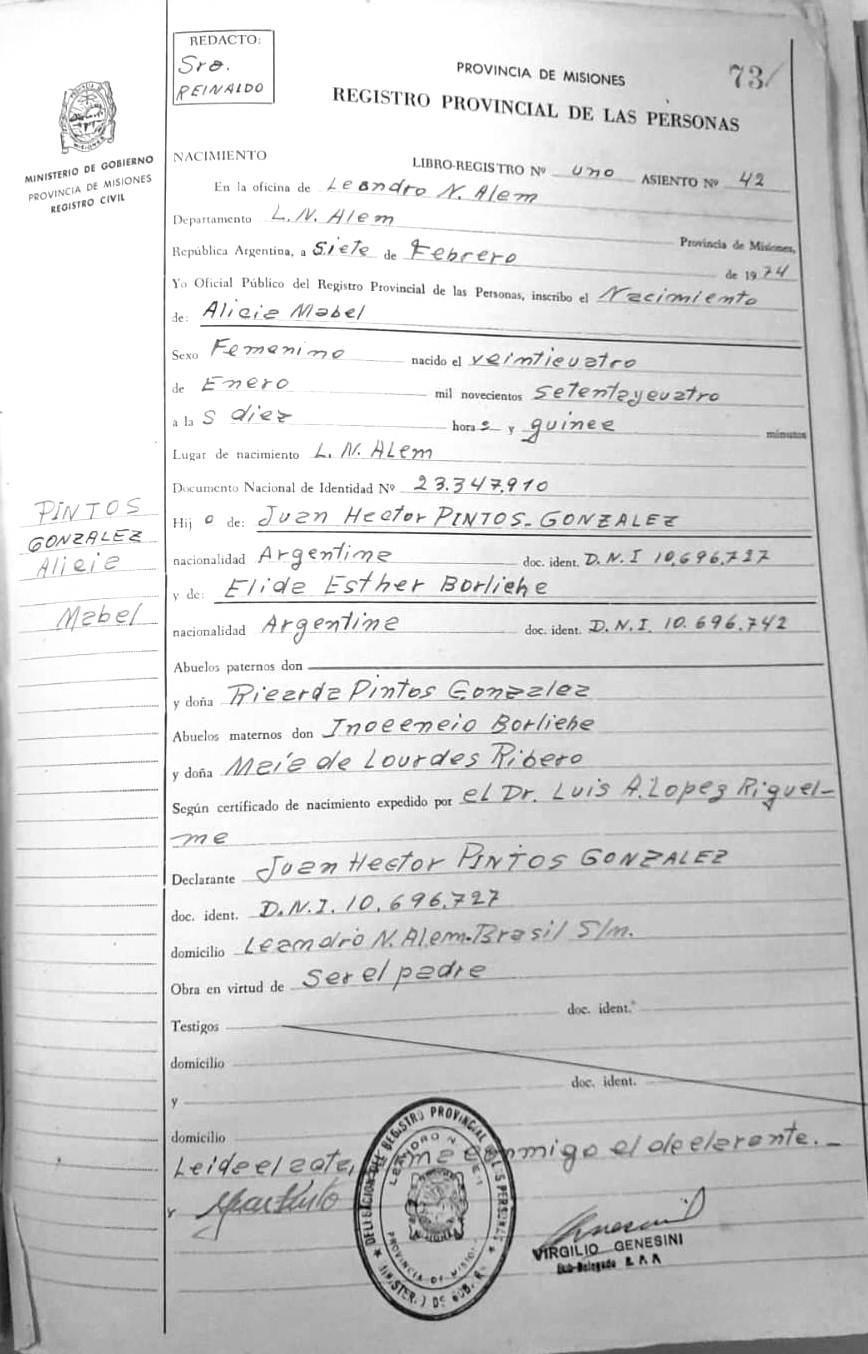 REDACTO:
Sra.
REINALDO
PROVINCIA DE MISIONES
73/
REGISTRO PROVINCIAL DE LAS PERSONAS
MINISTERIO DE GOBIERNO
PROVINCIA DE MISIONES
REGISTRO CIVIL
NACIMIENTO
LIBRO-REGISTRO Nº uno ASIENTO Nº 42
En la oficina de Leandro N. Alem
Departamento L. N. Alem
Provincia de Misiones,
República Argentina, a Siete de Febrero de 1974
Yo Oficial Público del Registro Provincial de las Personas, inscribo el Nacimiento
de: Alicia Mabel
Sexo Femenino nacido el veinticuatro
de Enero mil novecientos setentaycuatro
a la s diez hora s y quince minutos
Lugar de nacimiento L. N. ALem
Documento Nacional de Identidad Nº 23.347.910
PINTOS
GONZALEZ
Alicia
Mabel
Hij a de: Juan Hector PINTOS-GONZALEZ
nacionalidad Argentina doc. ident. D.N.I 10.696.727
y de: Elida Esther Borliche
nacionalidad Argentina doc. ident. D.N.I. 10.696.742
Abuelos paternos don
y doña Ricarda Pintos Gonzalez
Abuelos maternos don Inocencio Borliche
y doña Maía de Lourdes Ribero
Según certificado de nacimiento expedido por el Dr. Luis A. Lopez Riquel-
me
Declarante Juan Hector PINTOS GONZALEZ
doc. ident. D.N.I. 10.696.727
domicilio Leandro N. Alem-Brasil S/n.
Obra en virtud de Ser el padre
Testigos doc. ident.
domicilio
y doc. ident.
domicilio
Leida el acta, me conmigo el declarante.-
y
DELEGACION DEL REGISTRO PROVINCIAL DE LAS PERSONAS
LEANDRO N.
PROVINCIA DE MISIONES
VIRGILIO GENESINI
Sub-Delegado R. P. P.